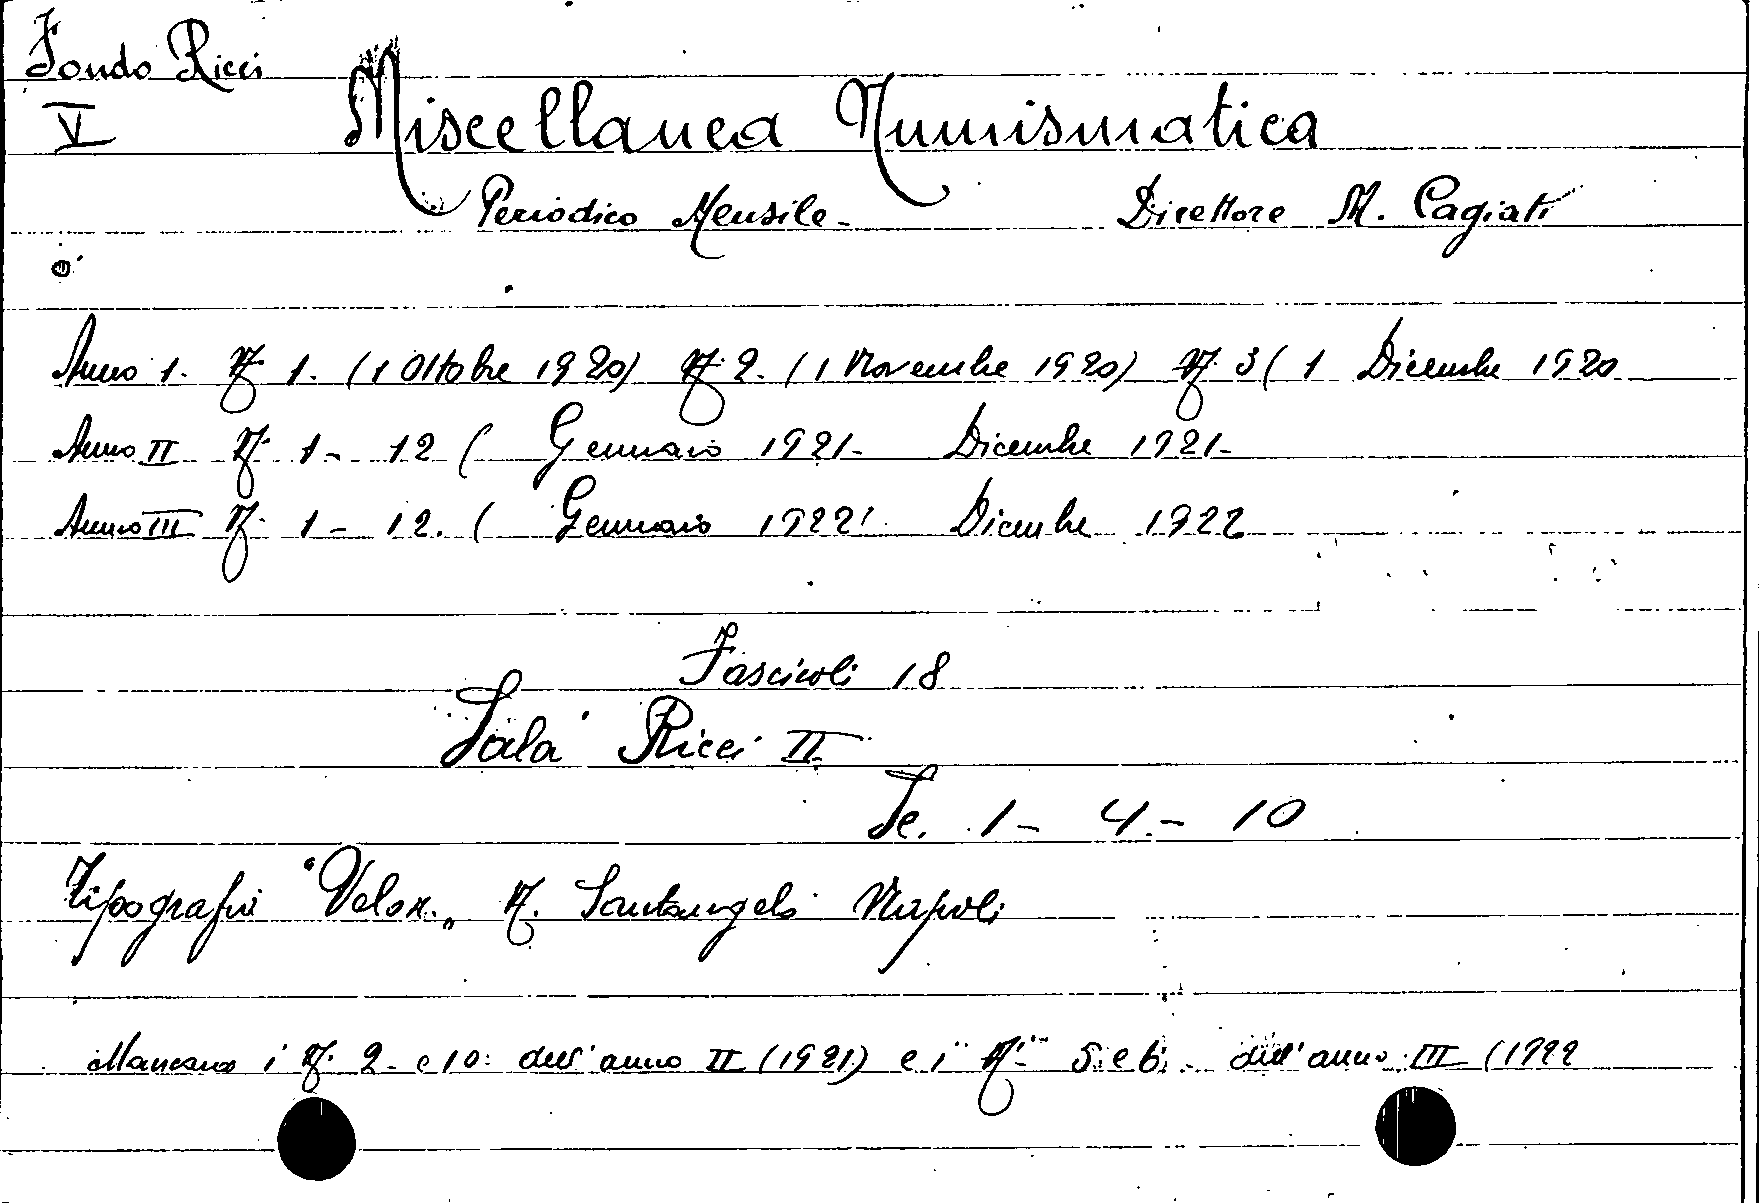 Fondo Ricci
V
Miscellanea Numismatica
Periodico Mensile - Direttore M. Cagiati
Anno 1. N. 1. (1 Ottobre 1920) N. 2. (1 Novembre 1920) N. 3 (1 Dicembre 1920
Anno II N. 1 - 12 ( Gennaio 1921 - Dicembre 1921 -
Anno III N. 1 - 12. ( Gennaio 1922 Dicembre 1922
Fascicoli 18
Sala Ricci II
Sc. 1 - 4 - 10
Tipografia "Velox" Santangelo Napoli
Mancano i N. 2 - e 10 dell'anno II (1921) e i N. 5 e 6 - dell'anno III (1922